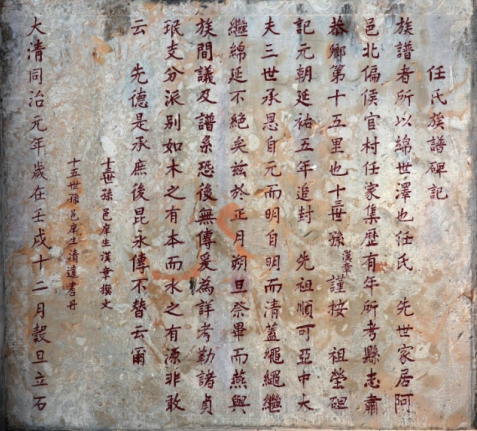 任氏族譜碑記
族譜者所以綿世澤也任氏　先世家居阿
邑北偏侯官村任家集歷有年所考縣志肅
恭鄉第十五里也十三世孫漢章謹按　祖塋碑
記元朝延祐五年追封　先祖順可亞中大
夫三世承恩自元而明自明而清蓋繩繩繼
繼綿延不絕矣茲於正月朔旦奈畢而燕與
族間議及譜系恐後無傳爰為詳考勒諸貞
珉支分派別如木之有本而水之有源非敢
云　先德是承庶後昆永傳不替云爾
十三世孫邑庠生漢章撰文
十五世孫邑庠生清遠書丹
大清同治元年歲在壬戌十二月穀旦立石